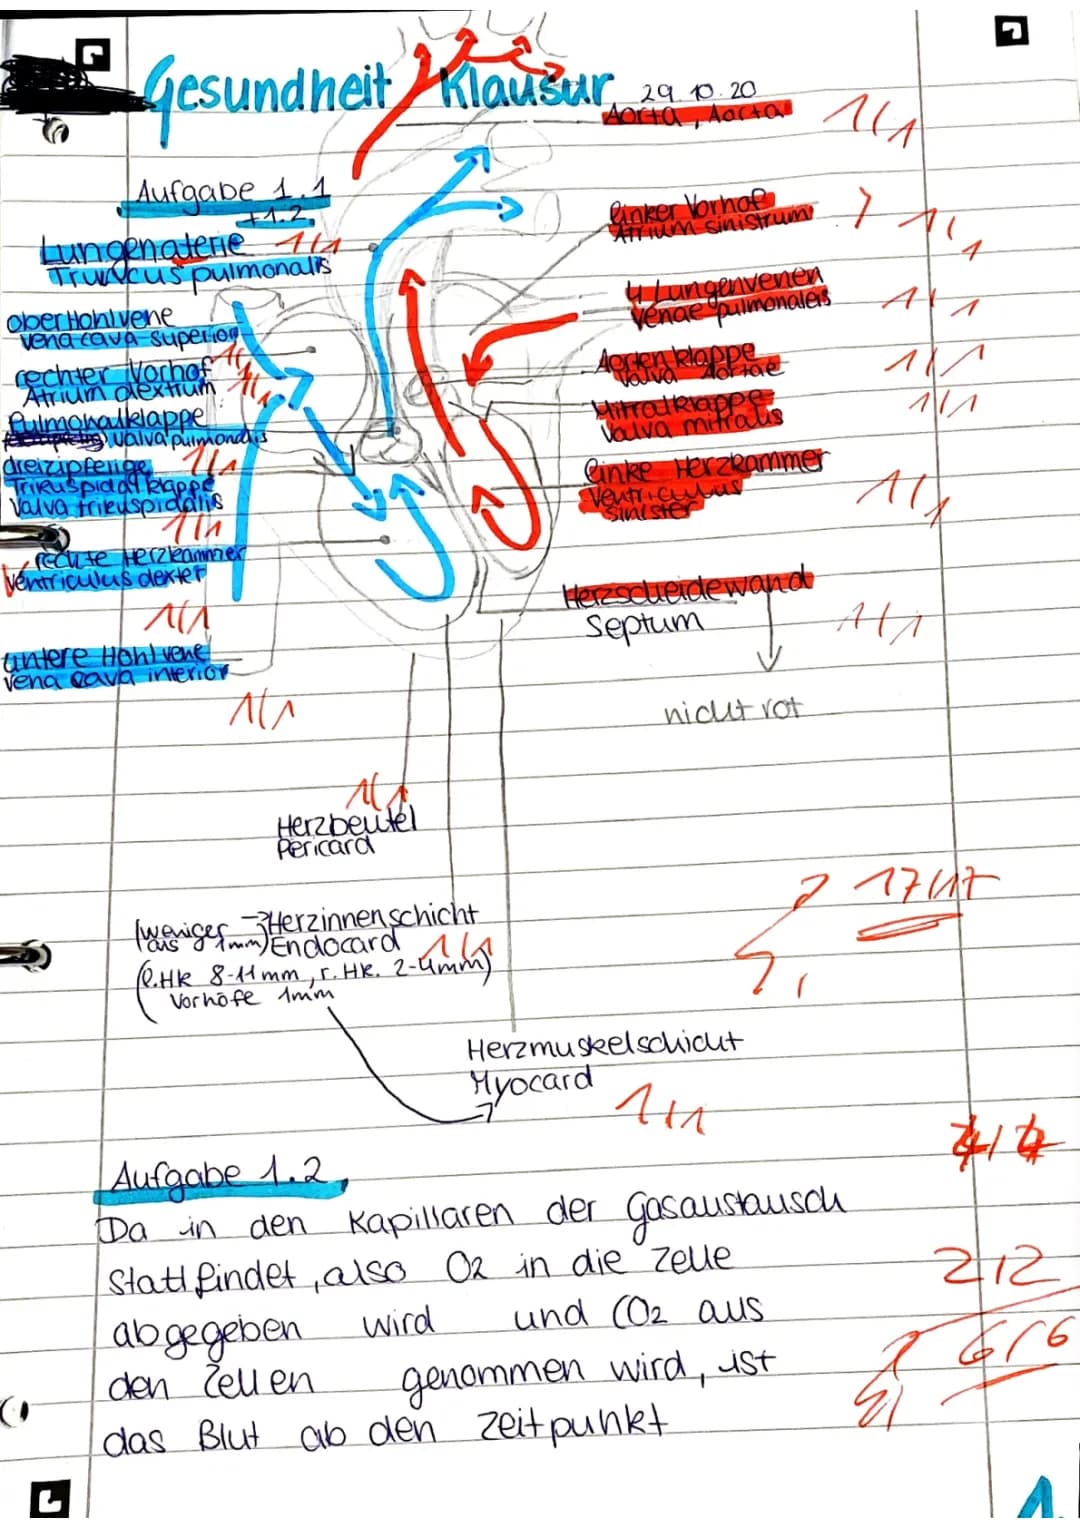 Gesundheit Klausur 29.10.20
Aorta, Aorta 1/1
Aufgabe 1.1
+1.2
Lungenaterie 1/1
Truncus pulmonalis
ober Hohlvene
vena cava superior
rechter Vorhof
Atrium dextrum 1/1
Pulmonalklappe
valva pulmonalis
dreizipfelige 1/1
Trikuspidal klappe
Valva trikuspidalis
1/1
rechte Herzkammer
Ventriculus dexter
1/1
untere Hohlvene
vena cava interior
1/1
linker Vorhof
Atrium sinistrum 1/1
4 Lungenvenen
Venae pulmonaleis 1/1
Aortenklappe
Valva Aortae 1/1
Mitralklappe
Valva mitralis 1/1
linke Herzkammer
Ventriculus
sinister 1/1
Herzscheidewand
Septum 1/1
nicht rot
1/1
Herzbeutel
Pericard
17/17
(weniger → Herzinnenschicht
als 1mm) Endocard 1/1
(l.HK 8-11mm, r.HK. 2-4mm)
Vorhöfe 1mm
Herzmuskelschicht
Myocard
1/1
4/4
Aufgabe 1.2
Da in den Kapillaren der Gasaustausch
stattfindet, also O2 in die Zelle 2/2
abgegeben wird und CO2 aus
den Zellen genommen wird, ist 6/6
das Blut ab den Zeitpunkt
1.